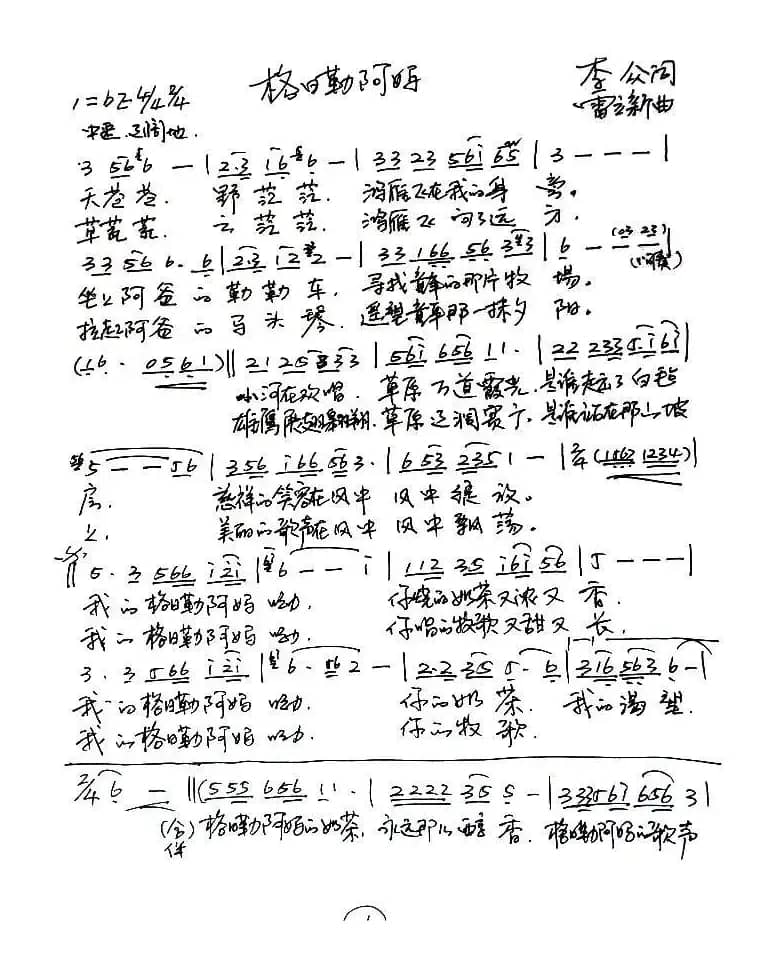 格日勒阿妈
李众词
1=bE 4/4 2/4
雷立新曲
中速 辽阔地.
3 56 6 — | 2·3 i6 6 — | 33 23 56i 65 | 3 — — — |
天苍苍. 野茫茫. 鸿雁飞在我的身旁。
草荒荒. 云茫茫. 鸿雁飞向了远方.
33 56 6· 6 | 2·3 12 2 — | 33 166 56 33 | 6 — — (03 23) |
(间奏)
坐上阿爸的勒勒车, 寻找着那片牧場。
拉起阿爸的马头琴. 遥望那一抹夕阳。
(16 · 0561) || 21 25 333 | 56i 656 11· | 22 233 5i6i |
小河在欢唱. 草原万道霞光. 是谁走了白毡
雄鹰展翅翱翔. 草原辽阔宽广. 是谁站在那山坡
5 — — 56 | 356 i66 563· | 6 53 235 1 — | 2/4 (1567 1234) |
房. 慈祥的笑容在风中 风中绽放。
上. 美丽的歌声在风中 风中飘荡。
|| 5· 3 566 i2i | 6 — — i | 112 35 i6i 56 | 5 — — — |
我的格日勒阿妈呦. 你烧的奶茶又浓又香.
我的格日勒阿妈呦. 你唱的牧歌又甜又长.
3· 3 566 i2i | 6· 56 2 — | 2·2 35 5· 6 | 316 563 6 — |
我的格日勒阿妈呦. 你的奶茶. 我的渴望.
我的格日勒阿妈呦. 你的牧歌.
2/4 6 — || (555 656 11· | 2222 35 5 — | 333567 656 3 |
(合伴) 格日勒阿妈的奶茶, 永远那么醇香. 格日勒阿妈的歌声
1